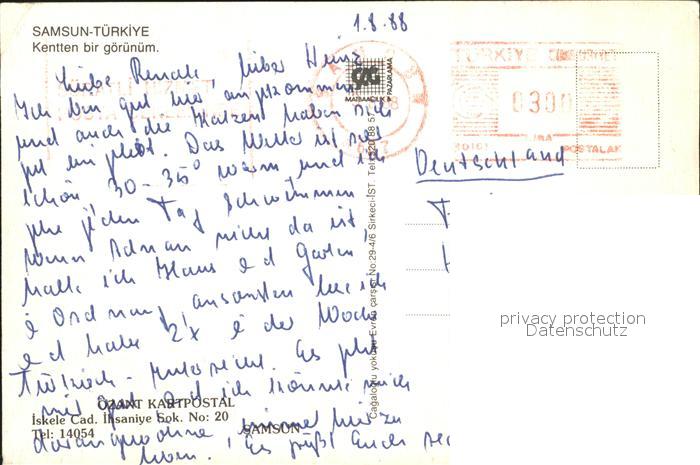 SAMSUN-TÜRKİYE
Kentten bir görünüm.
1.8.88
Liebe Renate, lieber Heinz
Ich bin gut hier angekommen
und auch die Katzen haben sich
gut eingelebt. Das Wetter ist sehr
schön, 30-35° warm, und ich
gehe jeden Tag schwimmen.
Wenn Adnan nicht da ist
halte ich Haus und Garten
in Ordnung, ansonsten lese ich
und habe 2x in der Woche
Türkisch-Unterricht. Es geht
mir gut und ich könnte mich
daran gewöhnen, immer hier zu
leben. Es grüßt Euch
Deutschland
TÜRKİYE
0300
LİRA
POSTALAR
MATBAACILIK PAZARLAMA
Cağaloğlu yokuşu Evren çarşısı No:29-4/6 Sirkeci-İST. Tel: 520 88 57
ÖZANT KARTPOSTAL
İskele Cad. İhsaniye Sok. No: 20
Tel: 14054
SAMSUN
privacy protection
Datenschutz